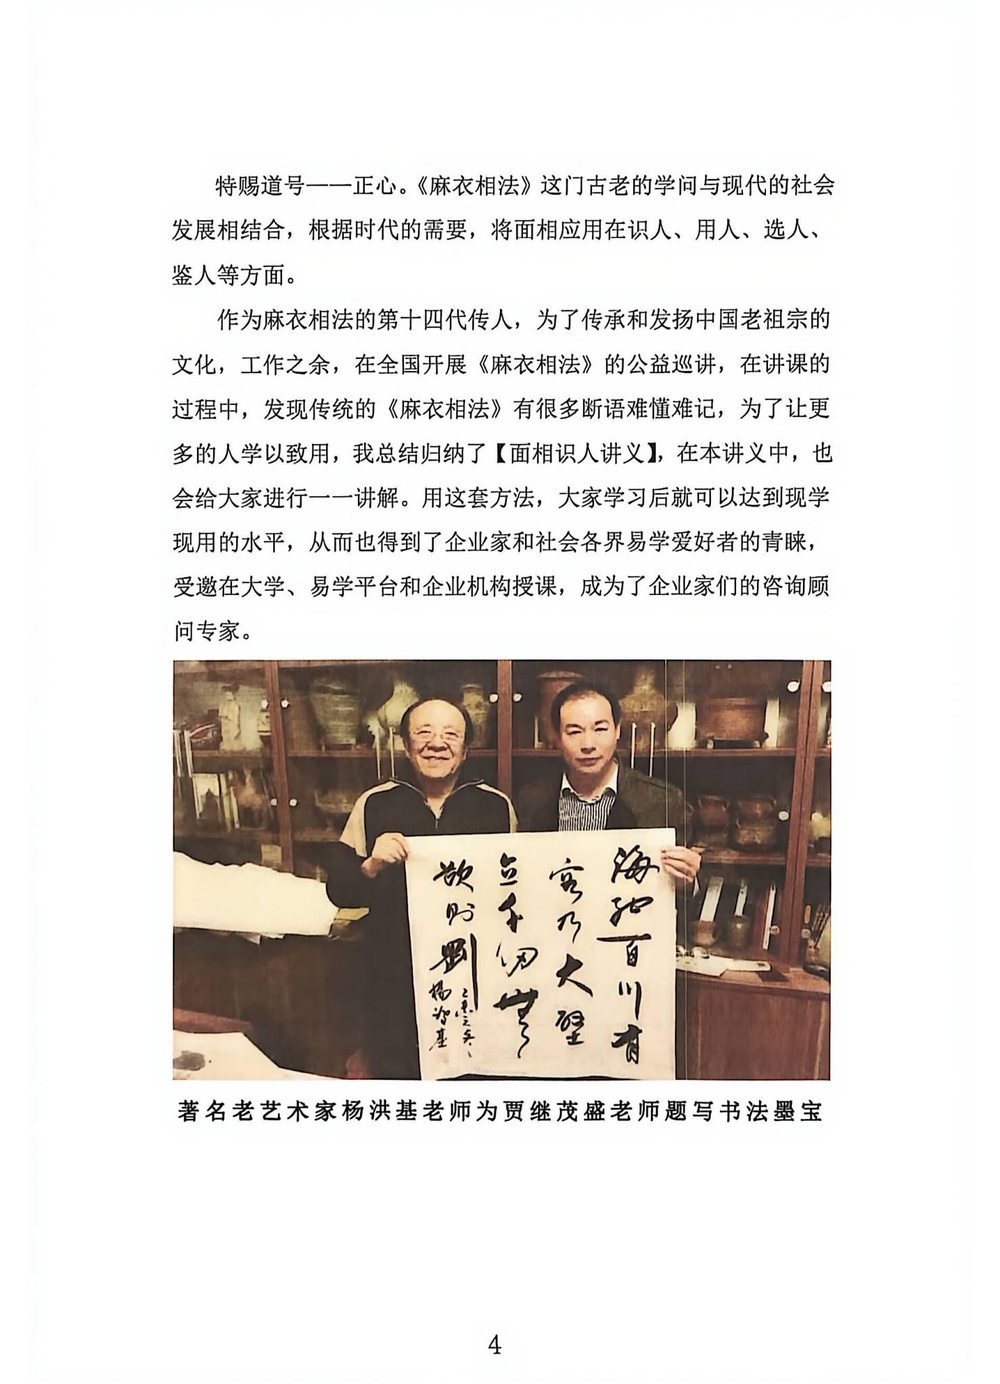 特赐道号——正心。《麻衣相法》这门古老的学问与现代的社会
发展相结合，根据时代的需要，将面相应用在识人、用人、选人、
鉴人等方面。
作为麻衣相法的第十四代传人，为了传承和发扬中国老祖宗的
文化，工作之余，在全国开展《麻衣相法》的公益巡讲，在讲课的
过程中，发现传统的《麻衣相法》有很多断语难懂难记，为了让更
多的人学以致用，我总结归纳了【面相识人讲义】，在本讲义中，也
会给大家进行一一讲解。用这套方法，大家学习后就可以达到现学
现用的水平，从而也得到了企业家和社会各界易学爱好者的青睐，
受邀在大学、易学平台和企业机构授课，成为了企业家们的咨询顾
问专家。
海纳百川有
容乃大壁
立千仞无
欲则刚
杨洪基
著名老艺术家杨洪基老师为贾继茂盛老师题写书法墨宝
4